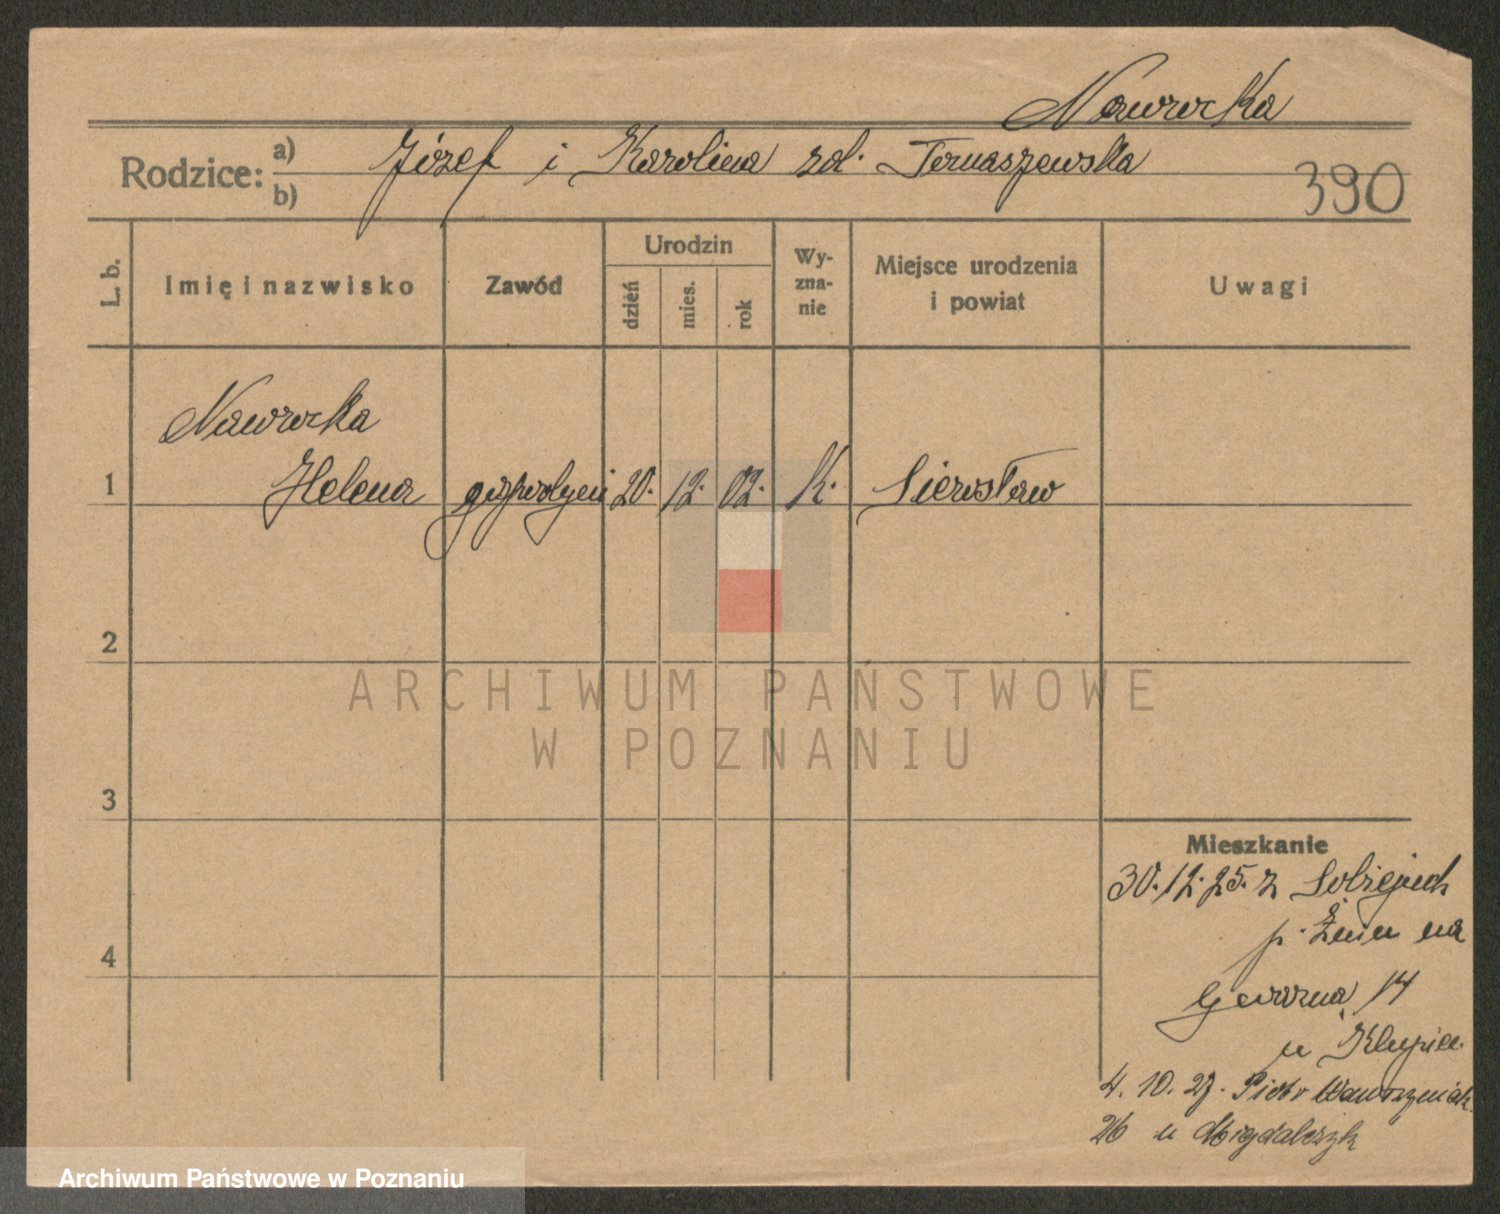 Nawrocka
Rodzice: a) Józef i Karolina zd. Tomaszewska
b)
390
L. b.
Imię i nazwisko
Zawód
Urodzin
dzień
mies.
rok
Wy-
zna-
nie
Miejsce urodzenia
i powiat
Uwagi
Nawrocka
1 Helena gospodyni 20. 12. 02. K. Sierosław
2
3
4
Mieszkanie
30.12.25. z Sobiejuch
p. Żnin na
Gwarna 14
u
4. 10. 27. Piotr Wawrzyniak
26 u Migdalczyk
ARCHIWUM PAŃSTWOWE
W POZNANIU
Archiwum Państwowe w Poznaniu